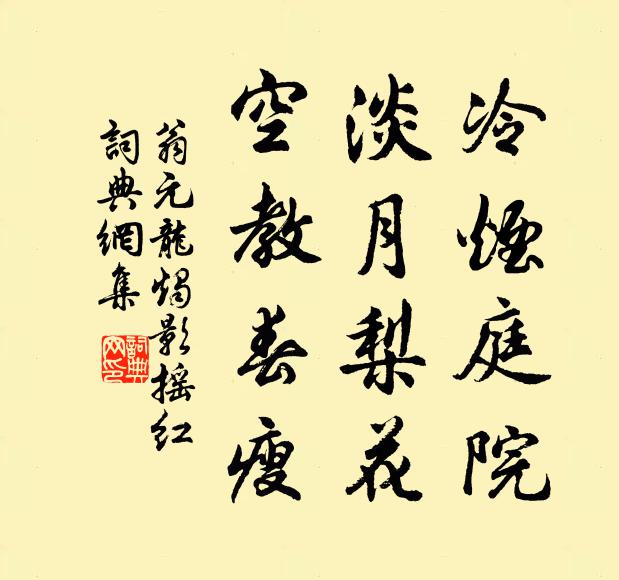 冷煙庭院
淡月梨花
空教春瘦
翁元龍燭影搖紅
詞典網集
詞典網印